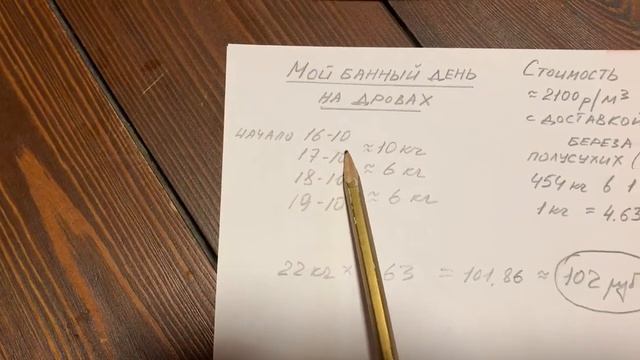 Мой банный день
на дровах
начало 16-10
≈ 10 кг
17-10
≈ 6 кг
18-10
≈ 6 кг
19-10
22 кг × 63 = 101,86 ≈ 102 руб
Стоимость
≈ 2100 р/м³
с доставкой
береза
полусухих (
454 кг в 1
1 кг = 4.63